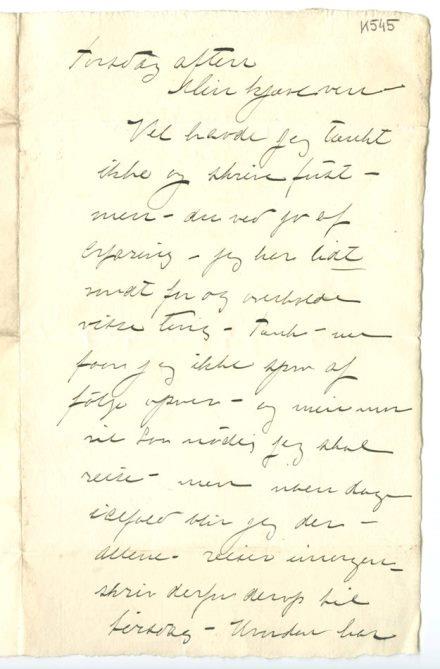 K545
Torsdag aften
Min kjære ven –
Vel havde jeg tænkt
ikke og skrive først –
men – du ved jo af
erfaring – jeg har lidt
ondt for og overholde
visse ting – Tænk – nu
faar jeg ikke spor af
følge opover – og min mor
vil saa nødig jeg skal
reise – men noen dage
ialfald blir jeg der –
allene – reiser imorgen –
skriv derfor derop til
tirsdag – Hvordan har